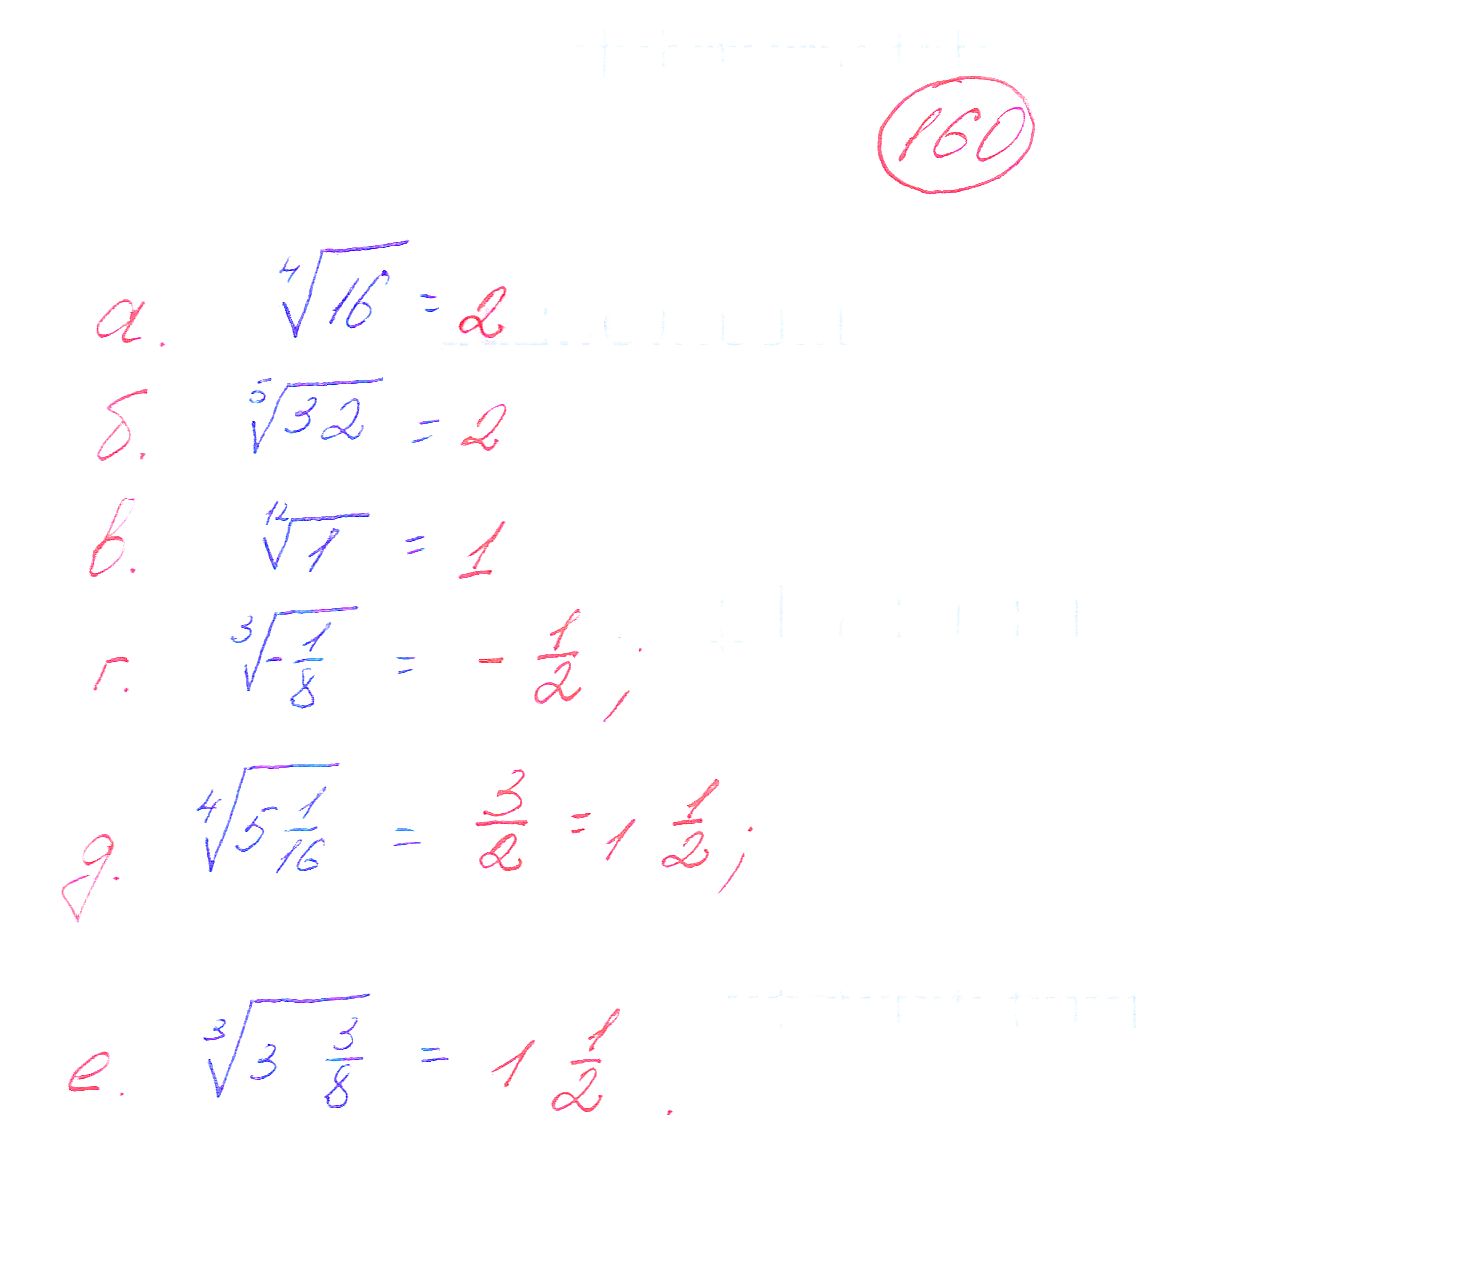 160
а. ⁴√16 = 2
б. ⁵√32 = 2
в. ¹²√1 = 1
г. ³√(-1/8) = - 1/2 ;
д. ⁴√(5 1/16) = 3/2 = 1 1/2 ;
е. ³√(3 3/8) = 1 1/2 .